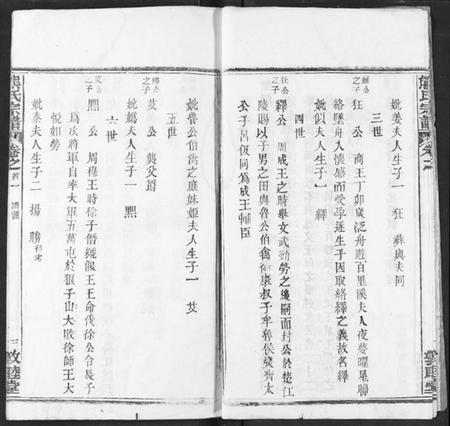 妣姜夫人生子一 狂 葬與夫同
三世
麗公之子
狂公 商王丁卯歲泛舟遊百里溪夫人夜夢曜星聯
絡墜舟入懷感而受孕遂生子因取絡繹之義故名繹
妣姒夫人生子一 繹
四世
狂公之子
繹公 周成王之時舉文武勤勞之後嗣而封公於楚江
陵賜以子男之田與魯公伯禽衛康叔子牟晉侯燮齊太
公子呂伋同為成王輔臣
妣魯公伯禽之庶妹姬夫人生子一 艾
五世
繹公之子
艾公 襲父爵
妣
夫人生子一 熙
六世
艾公之子
熙公 周穆王時徐子僭擬
王王命伐徐公令長子
為次將軍自率大軍五萬屯於狼子山大敗徐師王大
悅如勞
妣秦夫人生子二 揚 勝
熊氏宗譜
卷之首
一
二
敦睦堂